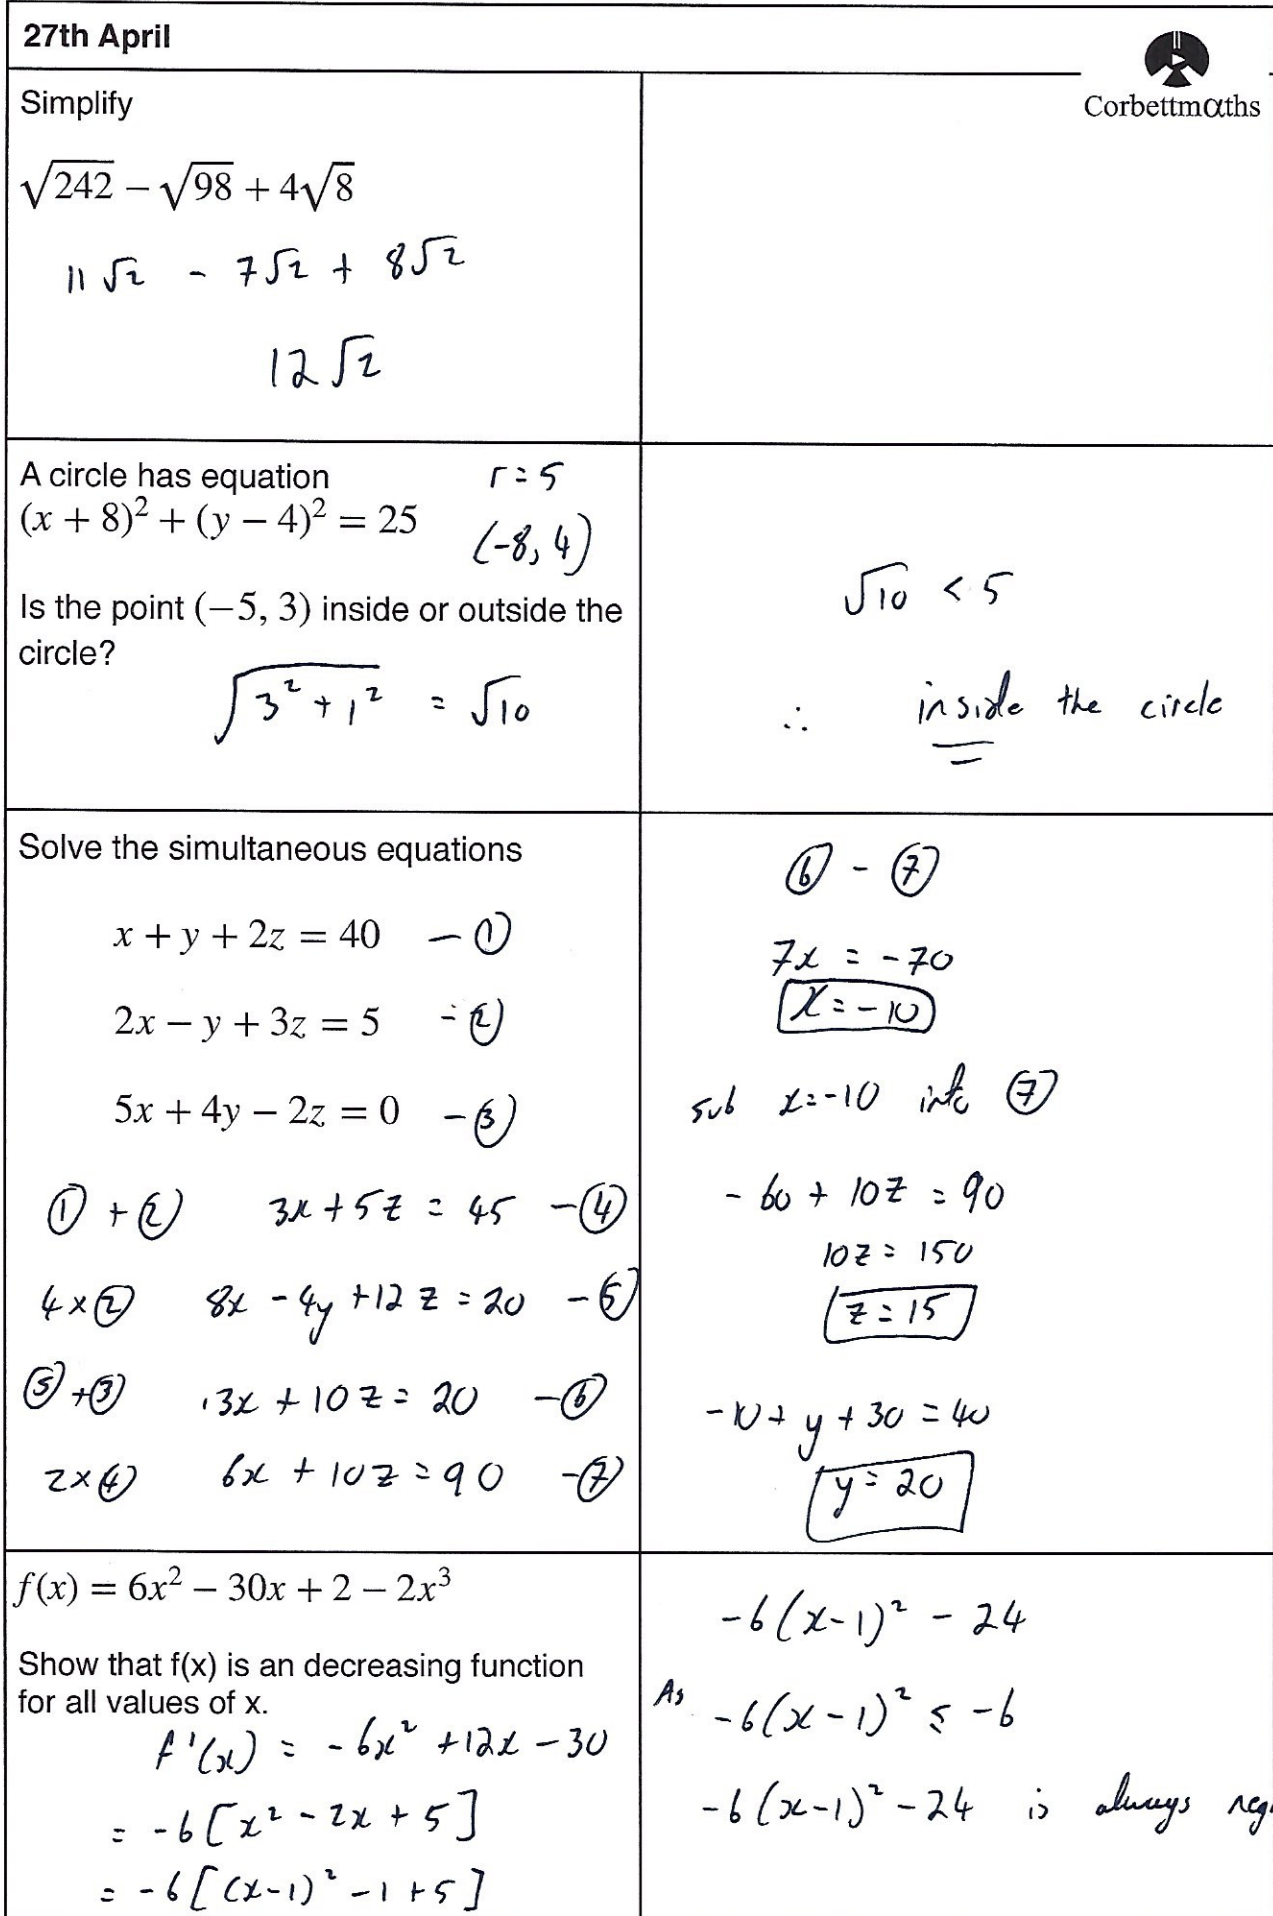 27th April
Corbettmαths
Simplify
√242 − √98 + 4√8
11√2 - 7√2 + 8√2
12√2
A circle has equation
r = 5
(x + 8)² + (y − 4)² = 25
(-8, 4)
Is the point (−5, 3) inside or outside the
circle?
√(3² + 1²) = √10
√10 < 5
∴ inside the circle
Solve the simultaneous equations
x + y + 2z = 40 - ①
2x − y + 3z = 5 - ②
5x + 4y − 2z = 0 - ③
① + ② 3x + 5z = 45 - ④
4 × ② 8x - 4y + 12z = 20 - ⑤
⑤ + ③ 13x + 10z = 20 - ⑥
2 × ④ 6x + 10z = 90 - ⑦
⑥ - ⑦
7x = -70
x = -10
sub x = -10 into ⑦
- 60 + 10z = 90
10z = 150
z = 15
-10 + y + 30 = 40
y = 20
f(x) = 6x² − 30x + 2 − 2x³
Show that f(x) is an decreasing function
for all values of x.
f'(x) = - 6x² + 12x - 30
= -6[x² - 2x + 5]
= -6[(x-1)² - 1 + 5]
-6(x-1)² - 24
As -6(x-1)² ≤ -6
-6(x-1)² - 24 is always neg